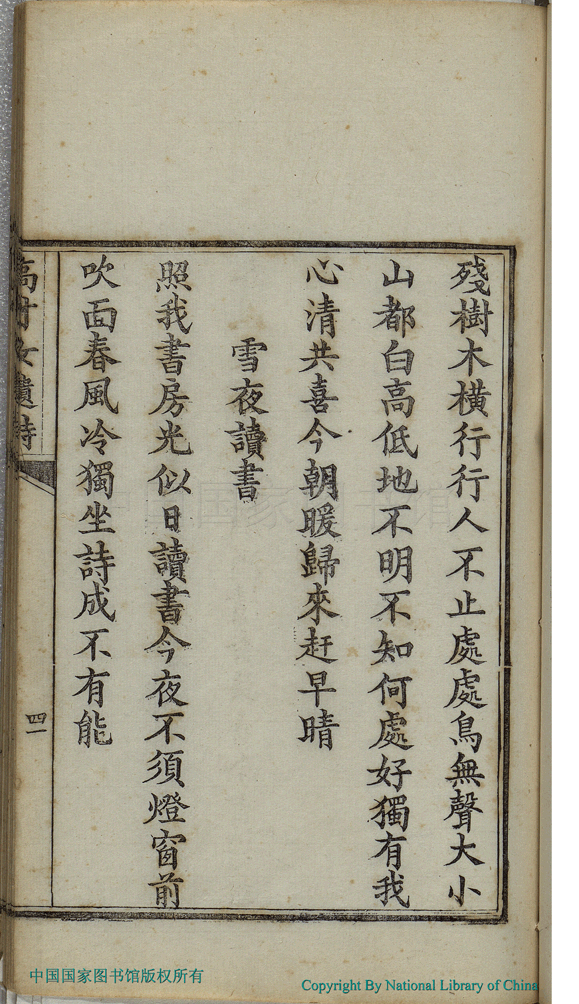 殘樹木橫行行人不止處處鳥無聲大小
山都白高低地不明不知何處好獨有我
心清共喜今朝暖歸來赶早晴
雪夜讀書
照我書房光似日讀書今夜不須燈窗前
吹面春風冷獨坐詩成不有能
遺詩
四一
中国国家图书馆
中国国家图书馆版权所有
Copyright By National Library of China